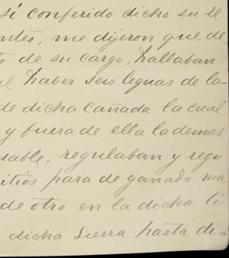 sí conferido dicho su se
ntes, me dijeron que de
de su cargo, hallaban
el haber seis leguas de la-
de dicha cañada la cual
y fuera de ella la demas
uable, regulaban y regu
itios para de ganado ma
de otro en la dicha li
dicha Sierra hasta di